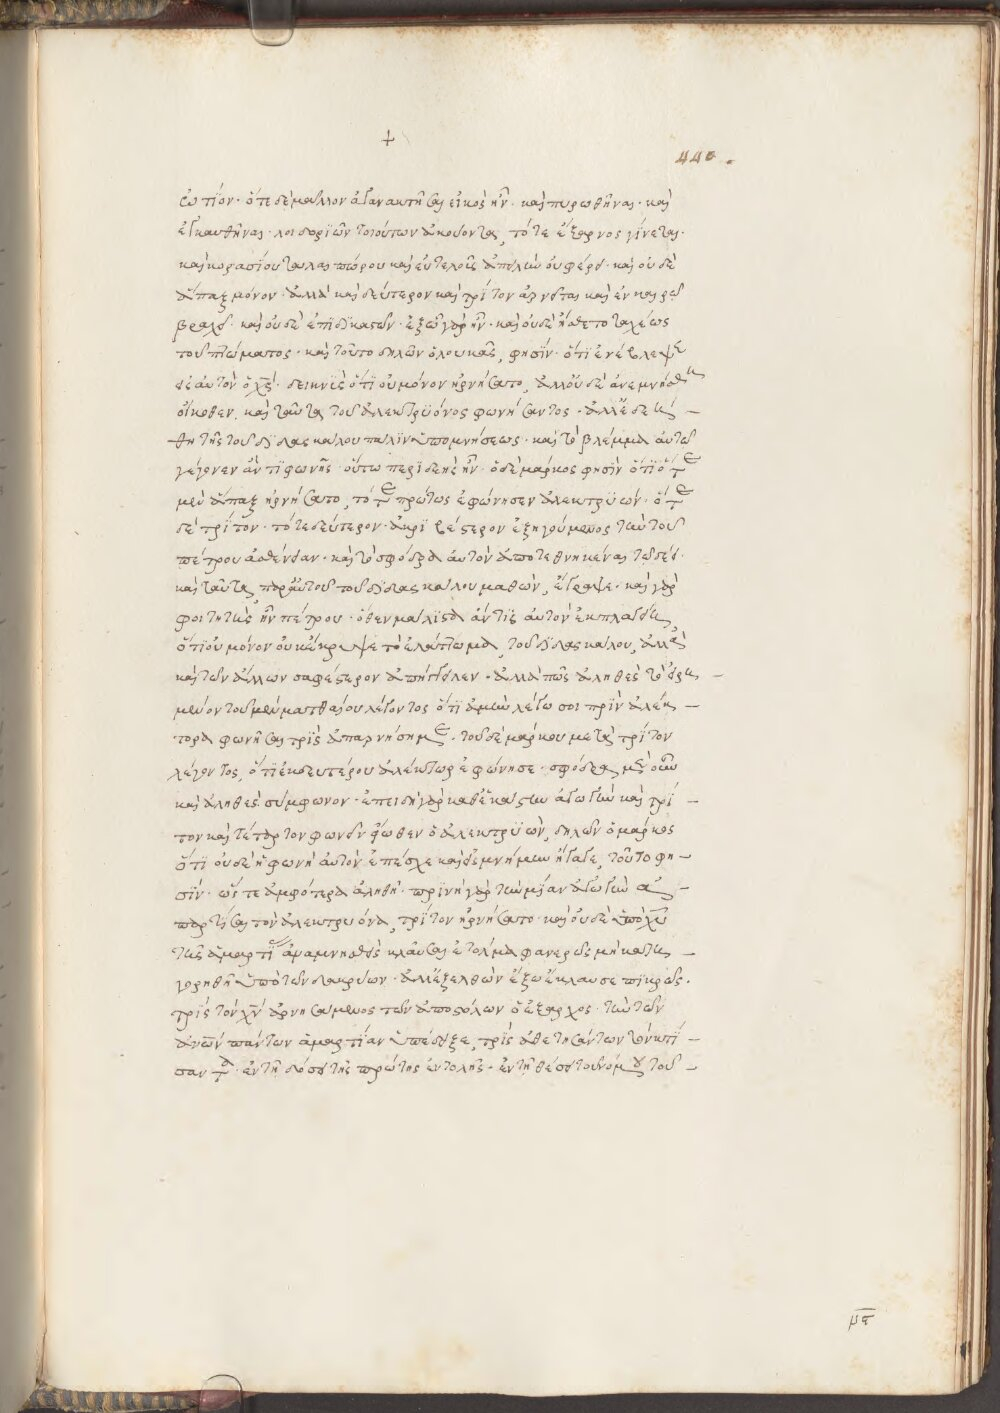 +
ὠτίον· ὅτε δὲ μᾶλλον ἀγανακτῆσαι εἰκὸς ἦν· καὶ πυρωθῆναι· καὶ
ἐκκαυθῆναι· λοιδοριῶν τοιούτων ἀκούοντα, τότε ἔξαρνος γίνεται·
καὶ κορασίου ταλαιπώρου καὶ εὐτελοῦς ἀπειλὴν οὐ φέρει· καὶ οὐδὲ
ἅπαξ μόνον· ἀλλὰ καὶ δεύτερον καὶ τρίτον ἀρνεῖται καὶ ἐν καιρῷ
βραχεῖ· καὶ οὐδὲ ἐπὶ δικαστῶν· ἔξω γὰρ ἦν· καὶ οὐδὲ ἤσθετο ταχέως
τοῦ πτώματος· καὶ τοῦτο δηλῶν ὁ λουκᾶς, φησίν· ὅτι ἐνέβλεψε
εἰς αὐτὸν ὁ χς· δεικνὺς ὅτι οὐ μόνον ἠρνήσατο, ἀλλ' οὐδὲ ἀνεμνήσθη
οἴκοθεν, καὶ ταῦτα τοῦ ἀλεκτρυόνος φωνήσαντος· ἀλλ' ἐδεή
θη τῆς τοῦ διδασκάλου πάλιν ὑπομνήσεως· καὶ τὸ βλέμμα αὐτῷ
γέγονεν ἀντὶ φωνῆς· οὕτω περιδεὴς ἦν· ὁ δὲ μάρκος φησὶν ὅτι ὅτε
μὲν ἅπαξ ἠρνήσατο, τότε πρώτως ἐφώνησεν ἀλεκτρυών· ὅτε
δὲ τρίτον· τότε δεύτερον· ἀκριβέστερον ἐξηγούμενος τὴν τοῦ
πέτρου ἀσθένειαν· καὶ τὸ σφόδρα αὐτὸν ἀποτεθνηκέναι τῷ δέει·
καὶ ταῦτα, παρ' αὐτοῦ τοῦ διδασκάλου μαθὼν, ἔγραψε· καὶ γὰρ
φοιτητὴς ἦν πέτρου· ὅθεν μάλιστα ἄν τις αὐτὸν ἐκπλαγείη,
ὅτι οὐ μόνον οὐκ ἔκρυψε τὸ ἐλάττωμα, τοῦ διδασκάλου, ἀλλὰ
καὶ τῶν ἄλλων σαφέστερον ἀπήγγειλεν· ἀλλὰ πῶς ἀληθὲς τὸ εἰρη
μένον τοῦ μὲν ματθαίου λέγοντος ὅτι ἀμὴν λέγω σοι πρὶν ἀλέκ
τορα φωνῆσαι τρὶς ἀπαρνήσῃ με· τοῦ δὲ μάρκου μετὰ τρίτον
λέγοντος, ὅτι ἐκ δευτέρου ἀλέκτωρ ἐφώνησε· σφόδρα μὲν οὖν
καὶ ἀληθὲς σύμφωνον· ἐπειδὴ γὰρ καθ' ἑκάστην ἀγωγὴν καὶ τρί
τον καὶ τέταρτον φωνεῖν εἴωθεν ὁ ἀλεκτρυὼν, δηλῶν ὁ μάρκος
ὅτι οὐδὲ ἡ φωνὴ αὐτὸν ἐπέσχε καὶ εἰς μνήμην ἤγαγε, τοῦτό φη
σίν· ὥστε ἀμφότερα ἀληθῆ· πρὶν ἢ γὰρ τὴν μίαν ἀγωγὴν ἀ
παρτίσαι τὸν ἀλεκτρυόνα, τρίτον ἠρνήσατο· καὶ οὐδὲ ὑπὸ χυ
τῆς ἁμαρτίας ἀναμνησθεὶς κλαῦσαι ἐτόλμα φανερῶς μὴ κατη
γορηθῇ ὑπὸ τῶν δακρύων· ἀλλ' ἐξελθὼν ἔξω ἔκλαυσε πικρῶς·
τρὶς τὸν χν ἀρνησάμενος τῶν ἀποστόλων ὁ ἔξαρχος· τὴν τῶν
ἀνων πάντων ἁμαρτίαν ὑπέδειξε, τρὶς ἀθετησάντων τὸν κτί
σαντα· ἐν τῇ δόσει τῆς πρώτης ἐντολῆς· ἐν τῇ θέσει τοῦ νόμου τοῦ